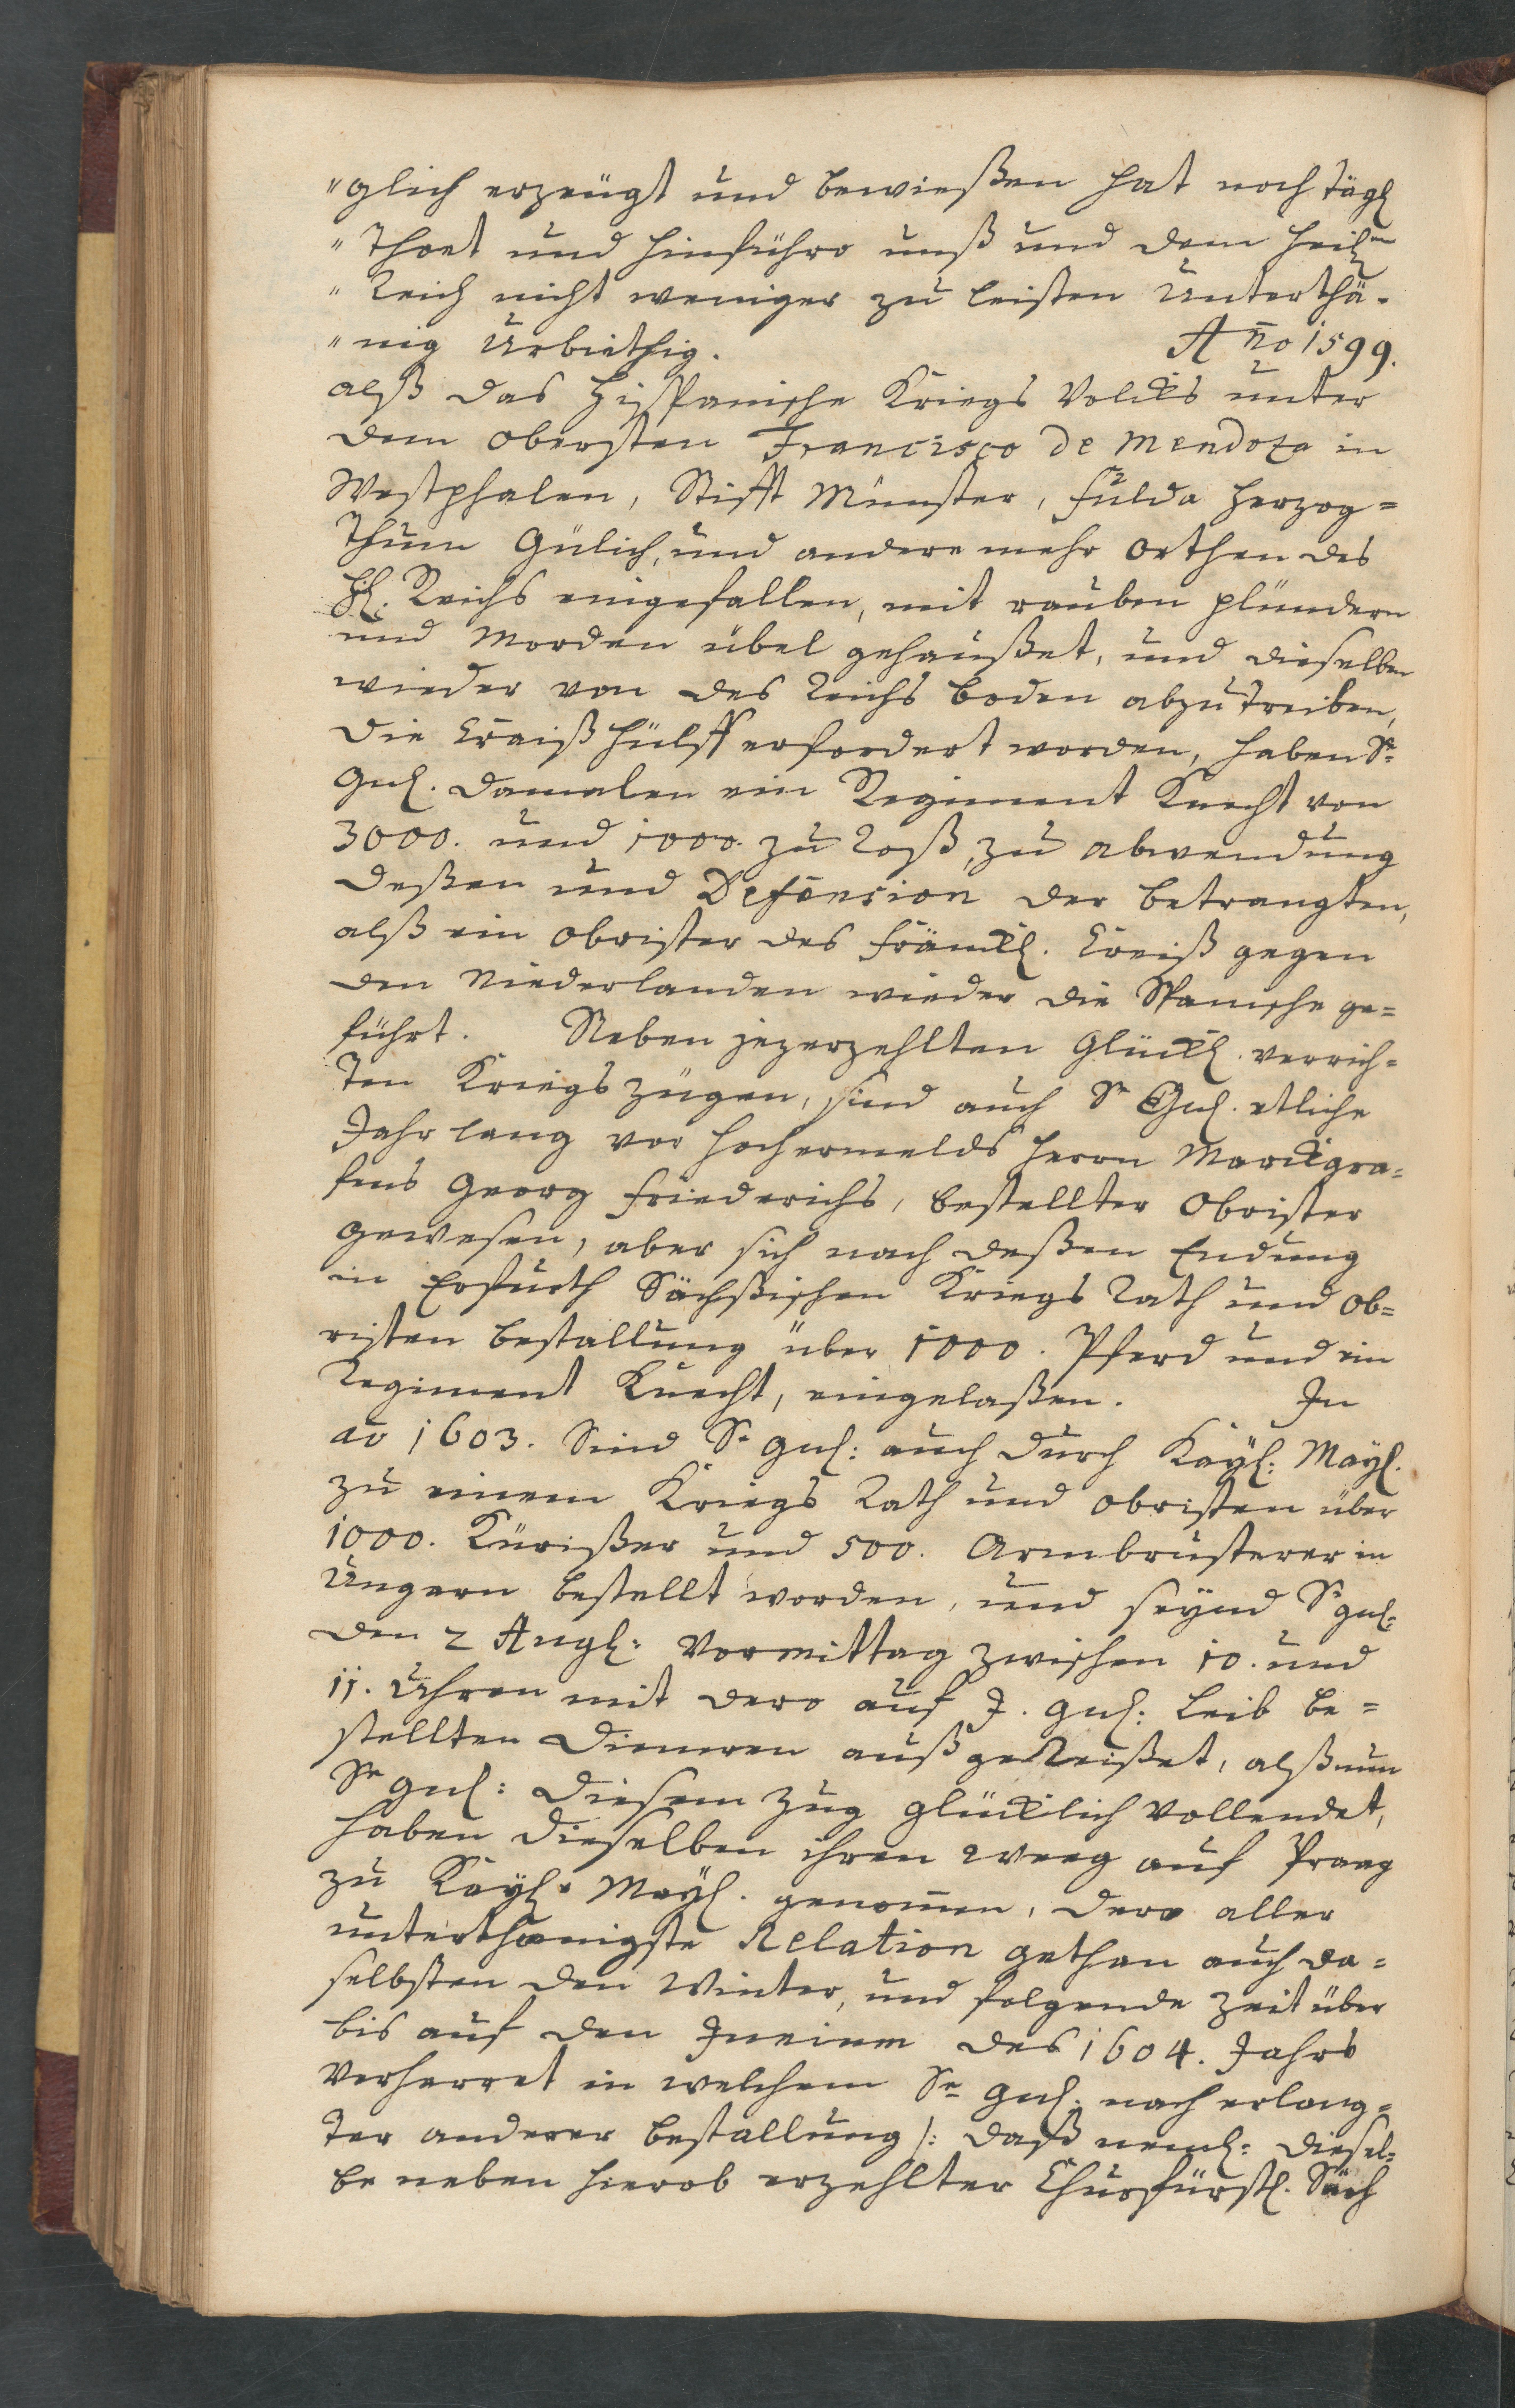 "glich erzeügt und bewießen hat noch tägl
"Thoet und hinführo unß und dem heilgn
"Reich nicht weniger zu leisten Unterthä-
"nig Urbiethig. Ano 1599.
alß das Hispanische Kriegs Volcks unter
dem obersten Francisco de Mendoza in
Westphalen, Stifft Münster, Fulda Herzog=
thum Gülich, und andere mehr orthen des
Hl. Reichs eingefallen, mit rauben plündern
und Morden übel gehaußet, und dieselben
wieder von des Reichs Boden abzutreiben,
die Craiß hülff erfordert worden, haben Sr
Gnl. damalen ein Regiment Knecht von
3000. und 1000. zu Roß, zu abwendung
deßen und Defension der betrangten,
alß ein obrister des Fränckl. Creiß gegen
den Niederlanden wieder die Spanische ge=
führt. Neben jezerzehlten Glückl. verrich=
ten Kriegs zügen, sind auch Sr Gnl. etliche
Jahr lang vor hochermelds Herrn Marckgra=
fens Georg Friederichs, bestellter Obrister
gewesen, aber sich nach deßen Endung
in Erfurth Sächßischen Kriegs Rath und Ob=
risten bestallung über 1000. Pferd und ein
Regiment Knecht, eingelaßen. In
ao 1603. Sind Sr Gnl: auch durch Kayl: Mayl.
zu einem Kriegs Rath und obristen über
1000. Kürißer und 500. Armbrusterer in
Ungern bestellt worden, und seynd Sr gnl:
den 2 Augl: Vormittag zwischen 10. und
11. Uhren mit dero auf J. gnl: Leib be=
stellten Dieneren außgereißet, alß nun
Sr gnl: diesem Zug glücklich vollendet,
haben dieselben ihren Weeg auf Praag
zu Kayl. Mayl. genomen, dero aller
unterthænigste Relation gethan auch da=
selbsten den Winter, und folgende Zeit über
bis auf den des 1604. Jahrs
verharret in welchem Sr gnl: nach erlang=
ter anderer bestallung /: daß neml: diesel=
be neben hierob erzehlter Churfürstl. Säch